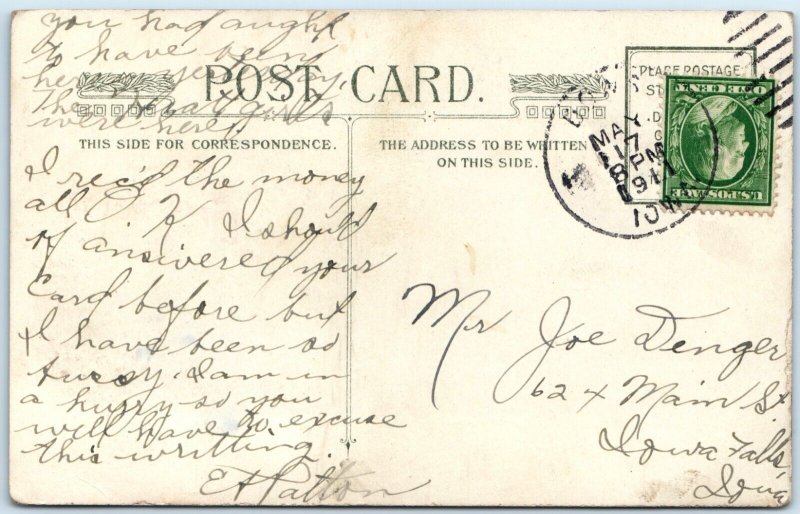 you had aught
to have been
here yesterday
the girls
were here
POST CARD.
THIS SIDE FOR CORRESPONDENCE.
THE ADDRESS TO BE WRITTEN
ON THIS SIDE.
I rec'd the money
all O K I should
of answered your
Card before but
I have been so
bussy. I am in
a hurry so you
will have to excuse
this writting.
E A Patton
PLACE POSTAGE
MAY
17
8 PM
1911
IOWA
U.S. POSTAGE
Mr Joe Denger
624 Main St.
Iowa Falls,
Iowa